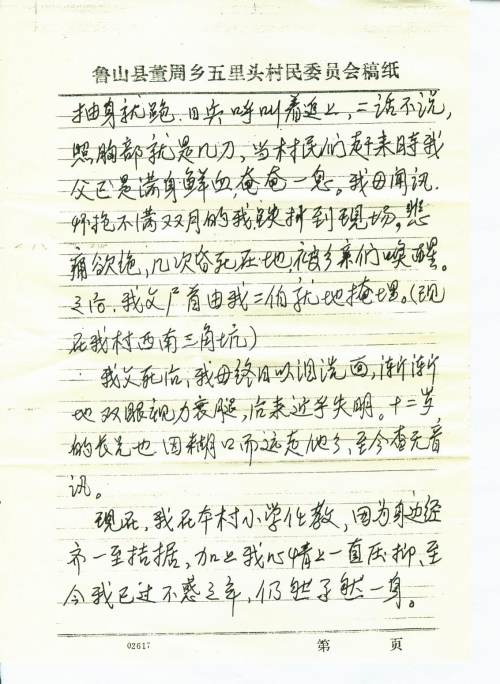 鲁山县董周乡五里头村民委员会稿纸
抽身就跑.日兵呼叫着追上,二话不说,
照胸部就是几刀,当村民们赶来时我
父已是满身鲜血,奄奄一息。我母闻讯.
怀抱不满双月的我跌扑到现场,悲
痛欲绝,几次昏死在地,被乡亲们唤醒。
之后,我父尸首由我二伯就地掩埋。(现
在我村西南三角坑)
我父死后,我母终日以泪洗面,渐渐
地双眼视力衰腿,后来近乎失明。十二岁
的长兄也因糊口而远走他乡,至今杳无音
讯。
现在,我在本村小学任教,因为身边经
齐一至拮据,加上我心情上一直压抑、至
今我已过不惑之年,仍然孑然一身。
02617
第 页